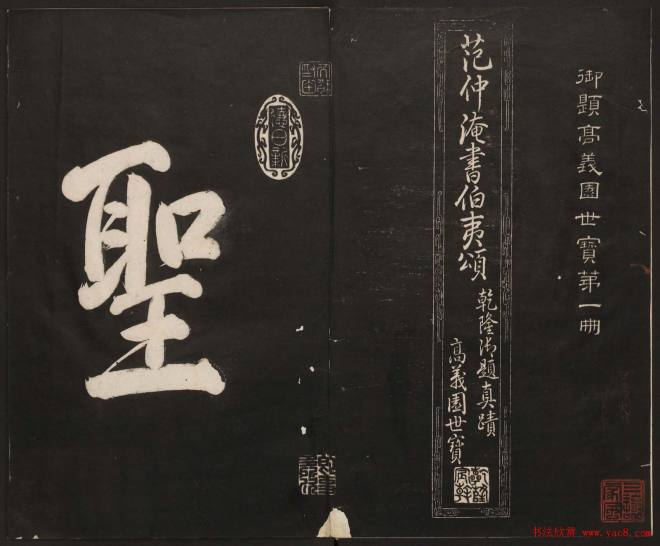 御題高義園世寶第一冊
范仲淹書伯夷頌
乾隆御題真蹟
高義園世寶
聖
书法欣赏 www.yac8.com